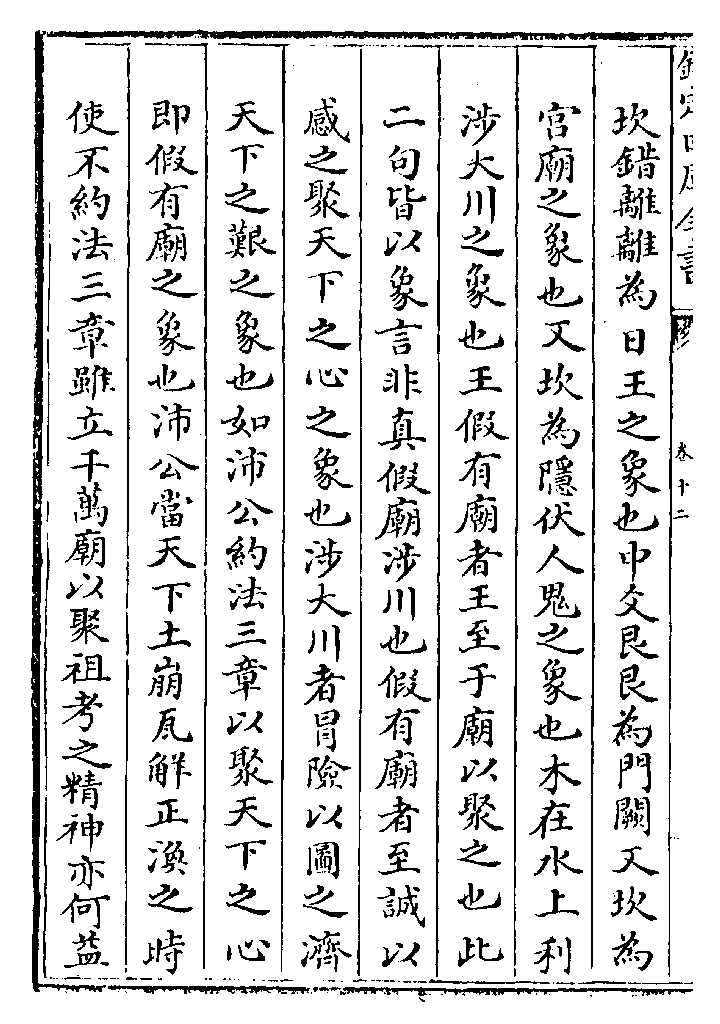 欽定四庫全書
卷十二
坎錯離離為日王之象也中爻艮艮為門闕又坎為
宫廟之象也又坎為隱伏人鬼之象也木在水上利
涉大川之象也王假有廟者王至于廟以聚之也此
二句皆以象言非真假廟涉川也假有廟者至誠以
感之聚天下之心之象也涉大川者冒險以圖之濟
天下之艱之象也如沛公約法三章以聚天下之心
即假有廟之象也沛公當天下土崩瓦解正渙之時
使不約法三章雖立千萬廟以聚祖考之精神亦何益